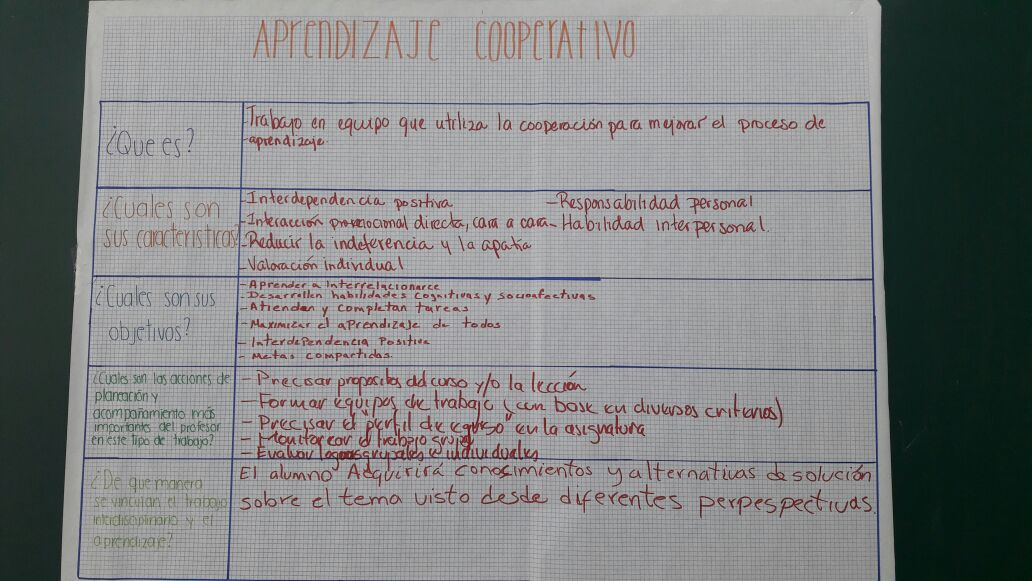 APrenDIZAJe COOPerAtIVO
¿Que es?
-Trabajo en equipo que utiliza la cooperación para mejorar el proceso de
-aprendizaje.
¿Cuales son
sus caracteristicas?
-Interdependencia positiva
-Responsabilidad personal
-Interacción promocional directa, cara a cara
-Habilidad interpersonal.
-Reducir la indeferencia y la apatia
-Valoración individual
¿Cuales son sus
objetivos?
-Aprender a Interrelacionarce
-Desarrollen habilidades cognitivas y socioafectivas
-Atiendan y completan tareas
-Maximizar el aprendizaje de todos
-Interdependencia Positiva
-Metas compartidas.
¿Cuales son las acciones de
planeación y
acompañamiento más
importantes del profesor
en este tipo de trabajo?
-Precisar propositos del curso y/o la lección
-Formar equipos de trabajo (con base en diversos criterios)
-Precisar el "perfil de egreso" en la asignatura
-Monitorear el trabajo grupal
-Evaluar logros grupales e individuales
¿De que manera
se vinculan el trabajo
interdisciplinario y el
aprendizaje?
El alumno Adquirirá conocimientos y alternativas de solución
sobre el tema visto desde diferentes perpespectivas.